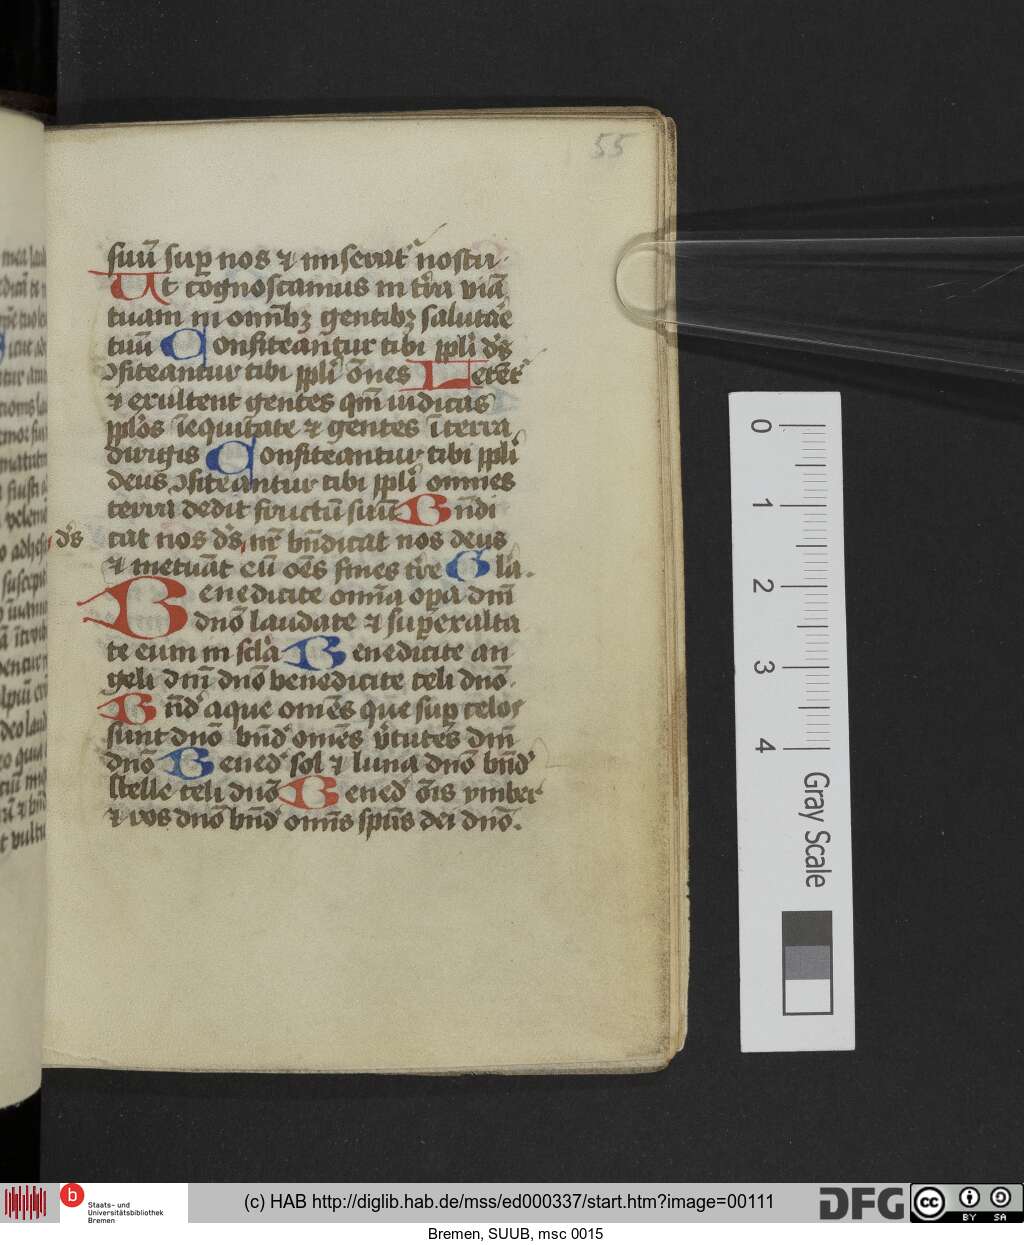 55
suū sup nos ⁊ miserat᷑ nostri.
Ut cōgnoscamus in tr̄ra viā
tuam in omībꝫ gentibꝫ salutār̄e
tuū Confiteantur tibi ppli ds̄
ꝯfiteantur tibi ppli ōnes Letēt᷑
⁊ exultent gentes qm̄ iudicas
pplōs īequitate ⁊ gentes ī terra
dirigis Confiteantur tibi ppli
deus ꝯfiteantur tibi ppli omnes
terra dedit fructū suū Bn̄di
cat nos ds̄ nr̄ bn̄dicat nos deus
ds̄
⁊ metuāt eū oēs fines tr̄e Gla.
Benedicite omīa opa dm̄
dnō laudate ⁊ supexalta
te eum in scl̄a Benedicite an
geli dm̄ dnō benedicite celi dnō.
Bn̄d aque omēs que sup celos
sunt dnō bn̄d omēs v̄tutēs dm̄
dnō Bened sol ⁊ luna dnō bn̄d
stelle celi dnō Bened ōis ymber
⁊ ros dnō bn̄d omīs spūs dei dnō.
0
1
2
3
4
Gray Scale
b Staats- und
Universitätsbibliothek
Bremen
(c) HAB http://diglib.hab.de/mss/ed000337/start.htm?image=00111
DFG
cc BY SA
Bremen, SUUB, msc 0015